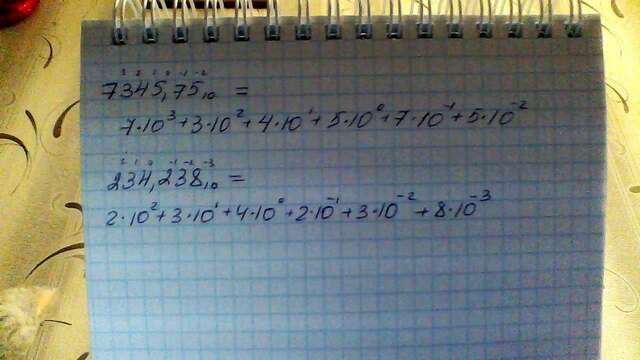 3 2 1 0 -1 -2
7345,75₁₀ =
7·10³+3·10²+4·10¹+5·10⁰+7·10⁻¹+5·10⁻²
2 1 0 -1 -2 -3
234,238₁₀ =
2·10²+3·10¹+4·10⁰+2·10⁻¹+3·10⁻²+8·10⁻³